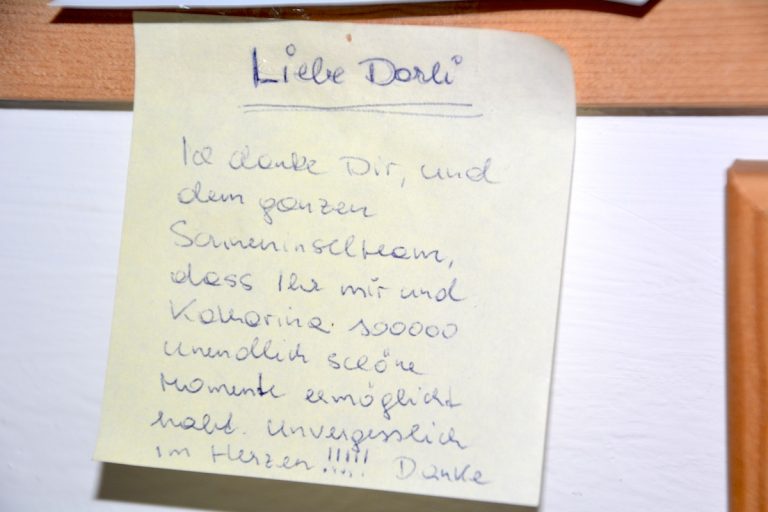 Liebe Dorli
Ich danke Dir, und
dem ganzen
Sonneninselteam,
dass Ihr mir und
Katharina sooooo
unendlich schöne
Momente ermöglicht
habt. Unvergesslich
im Herzen !!!!! Danke